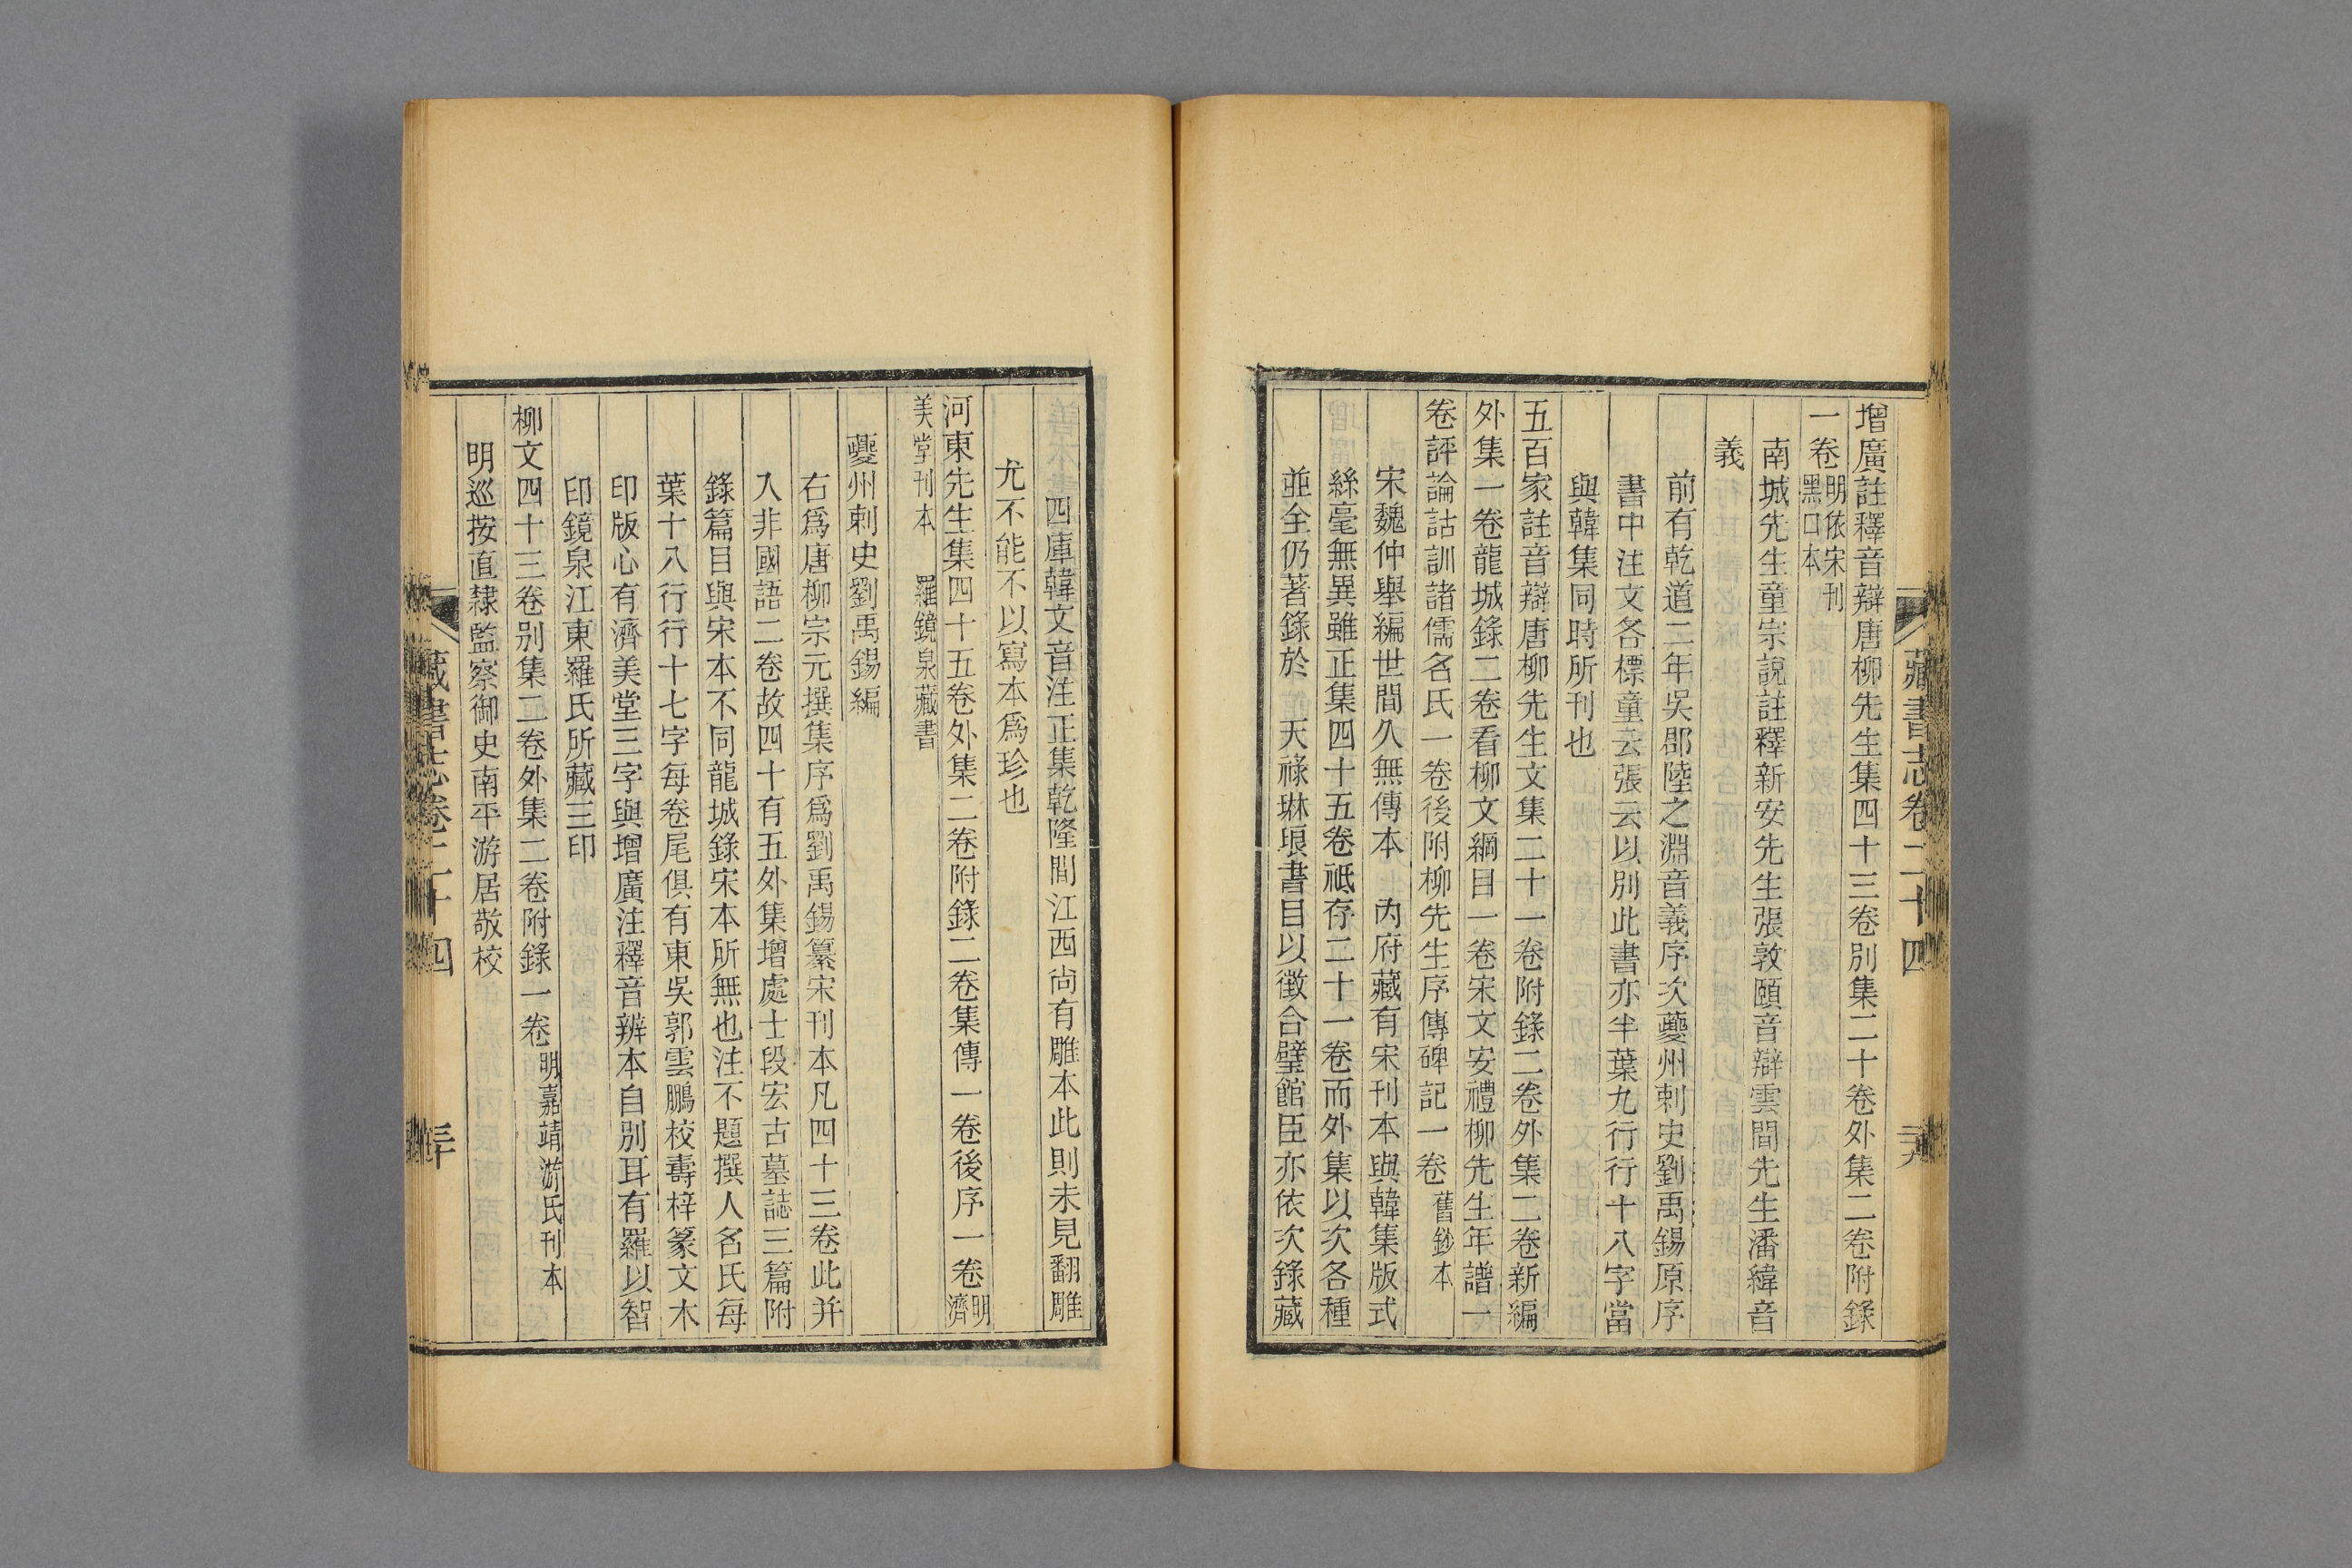 增廣註釋音辯唐柳先生集四十三卷別集二十卷外集二卷附錄
一卷明依宋刊黑口本
南城先生童宗說註釋新安先生張敦頤音辯雲間先生潘緯音
義
前有乾道二年吳郡陸之淵音義序次夔州刺史劉禹錫原序
書中注文各標童云張云以別此書亦半葉九行行十八字當
與韓集同時所刊也
五百家註音辯唐柳先生文集二十一卷附錄二卷外集二卷新編
外集一卷龍城錄二卷看柳文綱目一卷宋文安禮柳先生年譜一
卷評論詁訓諸儒名氏一卷後附柳先生序傳碑記一卷舊鈔本
宋魏仲舉編世間久無傳本 內府藏有宋刊本與韓集版式
絲毫無異雖正集四十五卷祗存二十一卷而外集以次各種
並全仍著錄於 天祿琳琅書目以徵合璧館臣亦依次錄藏
藏書志卷二十四
四庫韓文音注正集乾隆間江西尚有雕本此則未見翻雕
尤不能不以寫本爲珍也
河東先生集四十五卷外集二卷附錄二卷集傳一卷後序一卷明濟
美堂刊本 羅鏡泉藏書
夔州刺史劉禹錫編
右爲唐柳宗元撰集序爲劉禹錫纂宋刊本凡四十三卷此并
入非國語二卷故四十有五外集增處士段宏古墓誌三篇附
錄篇目與宋本不同龍城錄宋本所無也注不題撰人名氏每
葉十八行行十七字每卷尾俱有東吳郭雲鵬校壽梓篆文木
印版心有濟美堂三字與增廣注釋音辨本自別耳有羅以智
印鏡泉江東羅氏所藏三印
柳文四十三卷別集二卷外集二卷附錄一卷明嘉靖游氏刊本
明巡按直隸監察御史南平游居敬校
藏書志卷二十四 三十